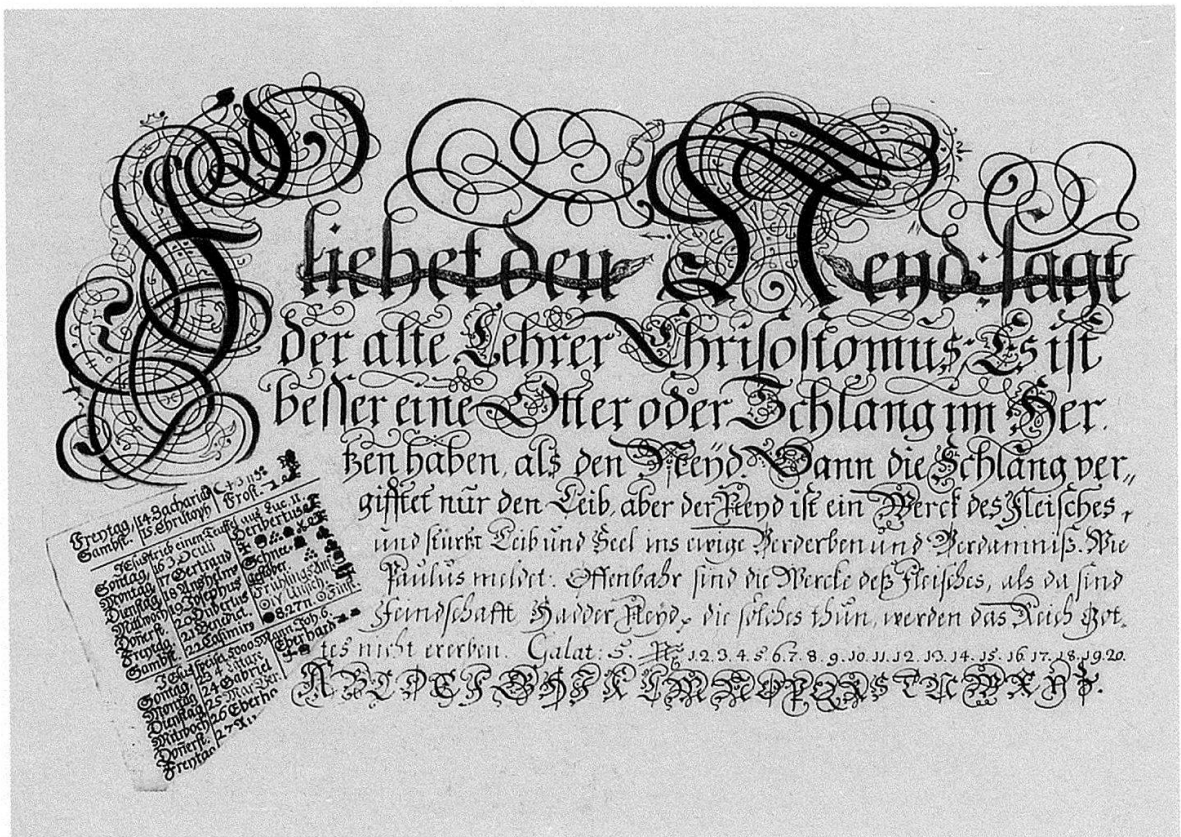 Fliehet den Neyd: sagt
der alte Lehrer Chrisostomus: Es ist
besser eine Otter oder Schlang im Her,
tzen haben, als den Neyd. Wann die Schlang ver,,
gifftet nur den Leib, aber der Neyd ist ein Werck des Fleisches,
und stürtzt Leib und Seel ins ewige Verderben und Verdamniß. Wie
Paulus meldet. Offenbahr sind die Wercke deß Fleisches, als da sind
Feindschafft Hadder Neyd, die solches thun, werden das Reich Got,
tes nicht ererben. Galat: 5. 1. 2. 3. 4. 5. 6. 7. 8. 9. 10. 11. 12. 13. 14. 15. 16. 17. 18. 19. 20.
A B C D E F G H I K L M N O P Q R S T U W X Y Z.
Freytag 14. Zacharias
Sambst. 15. Christoph Frost.
JEsus trieb einen Teuffel aus, Luc. 11
Sontag 16 3 Oculi Heribertus
Montag 17 Gertraud
Dienstag 18 Anshelm Schnee
Mittwoch 19 Josephus
Doñerst. 20 Hubertus Frühlings Anf.
Freytag 21 Benedict.
Sambst. 22 Casimir 8.27n
JEsus speiset 5000 Mann, Joh. 6.
Sontag 23 4 Eberhard
Montag 24 Gabriel
Dienstag 25
Mittwoch 26
Doñerst. 27
Freytag